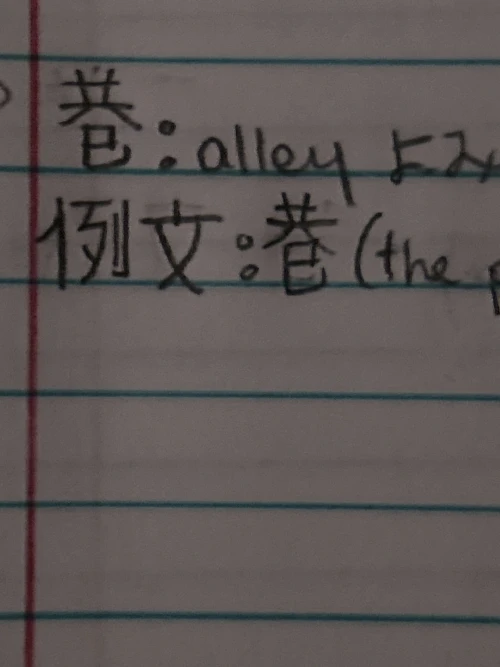 巷: alley よみ
例文:巷(the